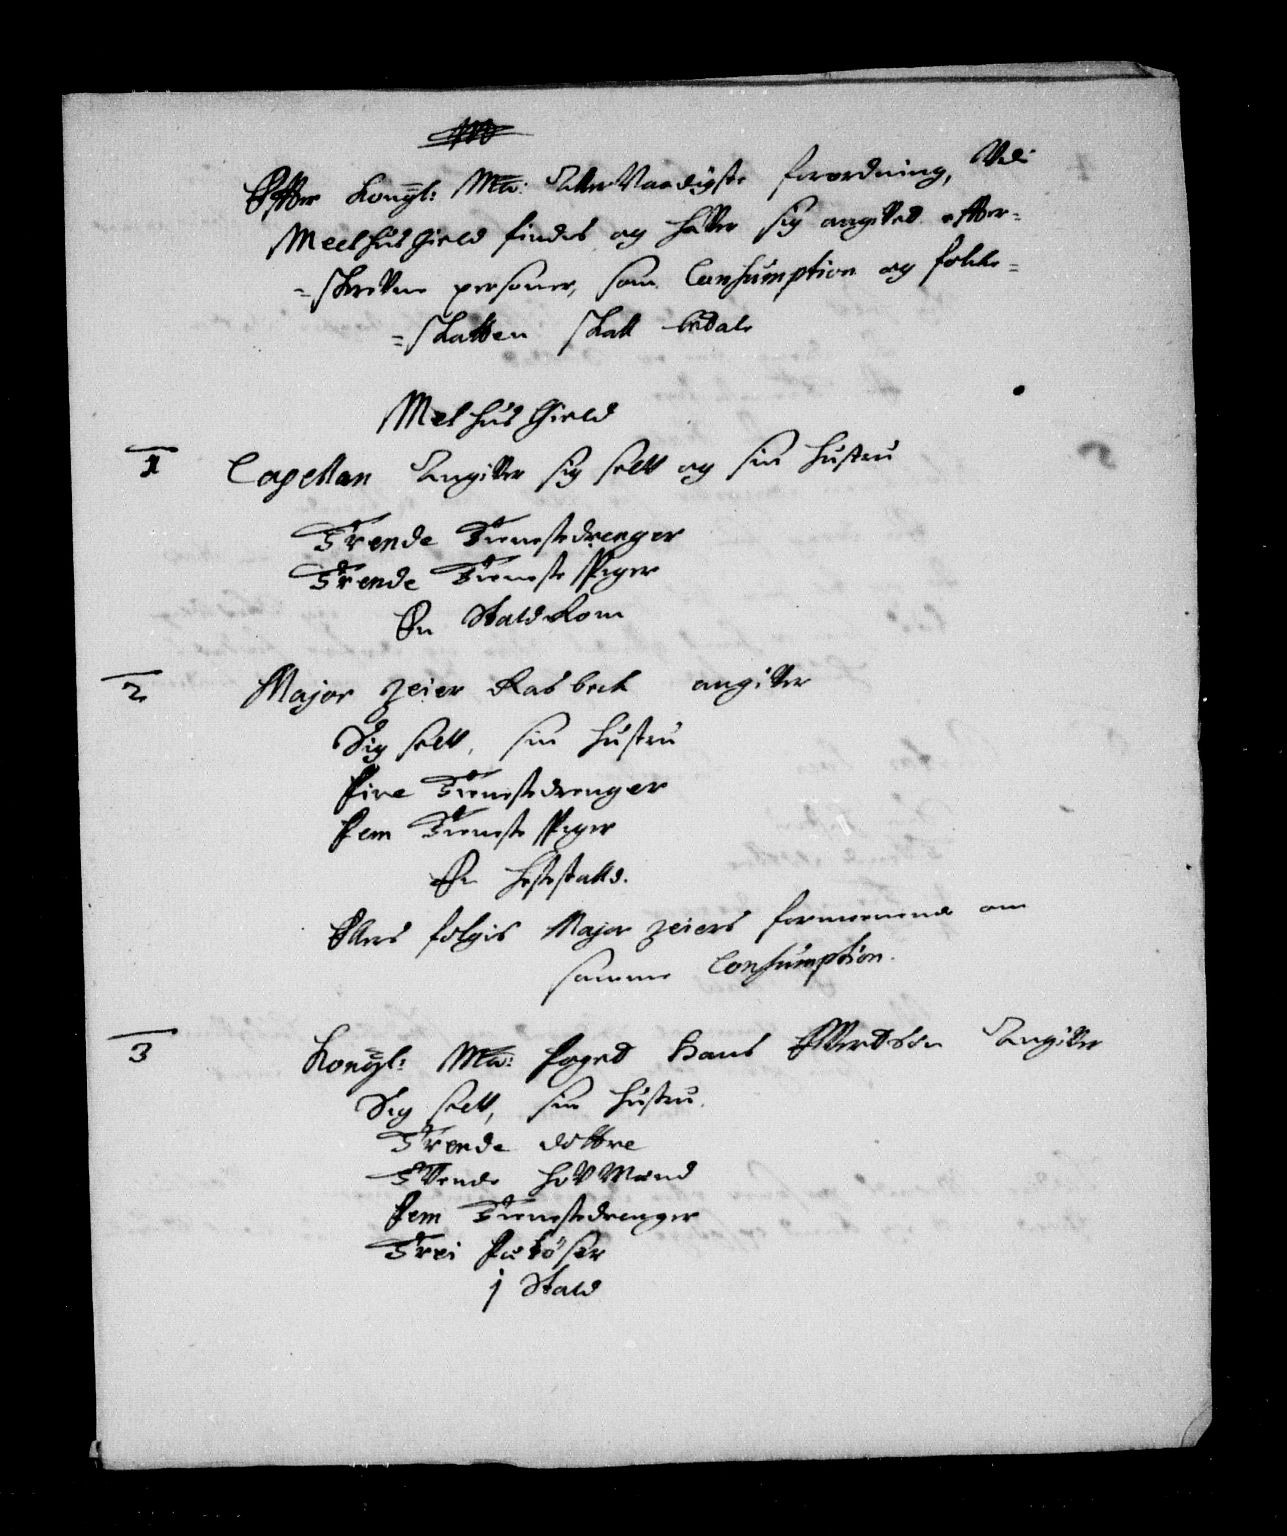 Effter Kongl: Ma: Aller Naadigste forordning, Udi
Meelhus Gield findes og hafver sig angifved effter=
=skrefvne personer, som Consumption og folke=
=skatten skall betale
Melhus Gield
1 Capellan Angifver sig self og sin hustru
Trende Tienestedrenger
Trende Tieneste Piger
En Stald Rom
2 Major Zeier Rasbech angifver
Sig self, sin hustru
Fire Tienestedrenger
Fem Tieneste Piger
En hestestald.
Ellers følgis Major Zeiers formeenende om
samme Consumption.
3 Kongl: Ma: foged Hans Evertsøn Angifver
Sig self, sin hustru.
Trende døttre
Tvende hofMænd
Fem Tienestedrenger
Trei
1 Stald